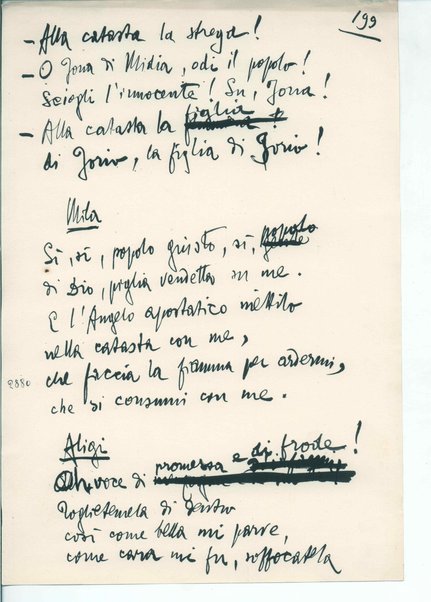 199
- Alla catasta la strega!
- O Jona di Midia, odi il popolo!
Sciogli l'innocente! Su, Jona!
- Alla catasta la figlia
di Jorio, la figlia di Jorio!
Mila
Sì, sì, popolo giusto, sì, popolo
di Dio, piglia vendetta su me.
E l'Angelo apostatico mettilo
nella catasta con me,
che faccia la fiamma per ardermi,
che si consumi con me.
2880
Aligi
Oh, voce di promessa e di frode!
Toglietemela di dentro
così come bella mi parve,
come cara mi fu, soffocatela